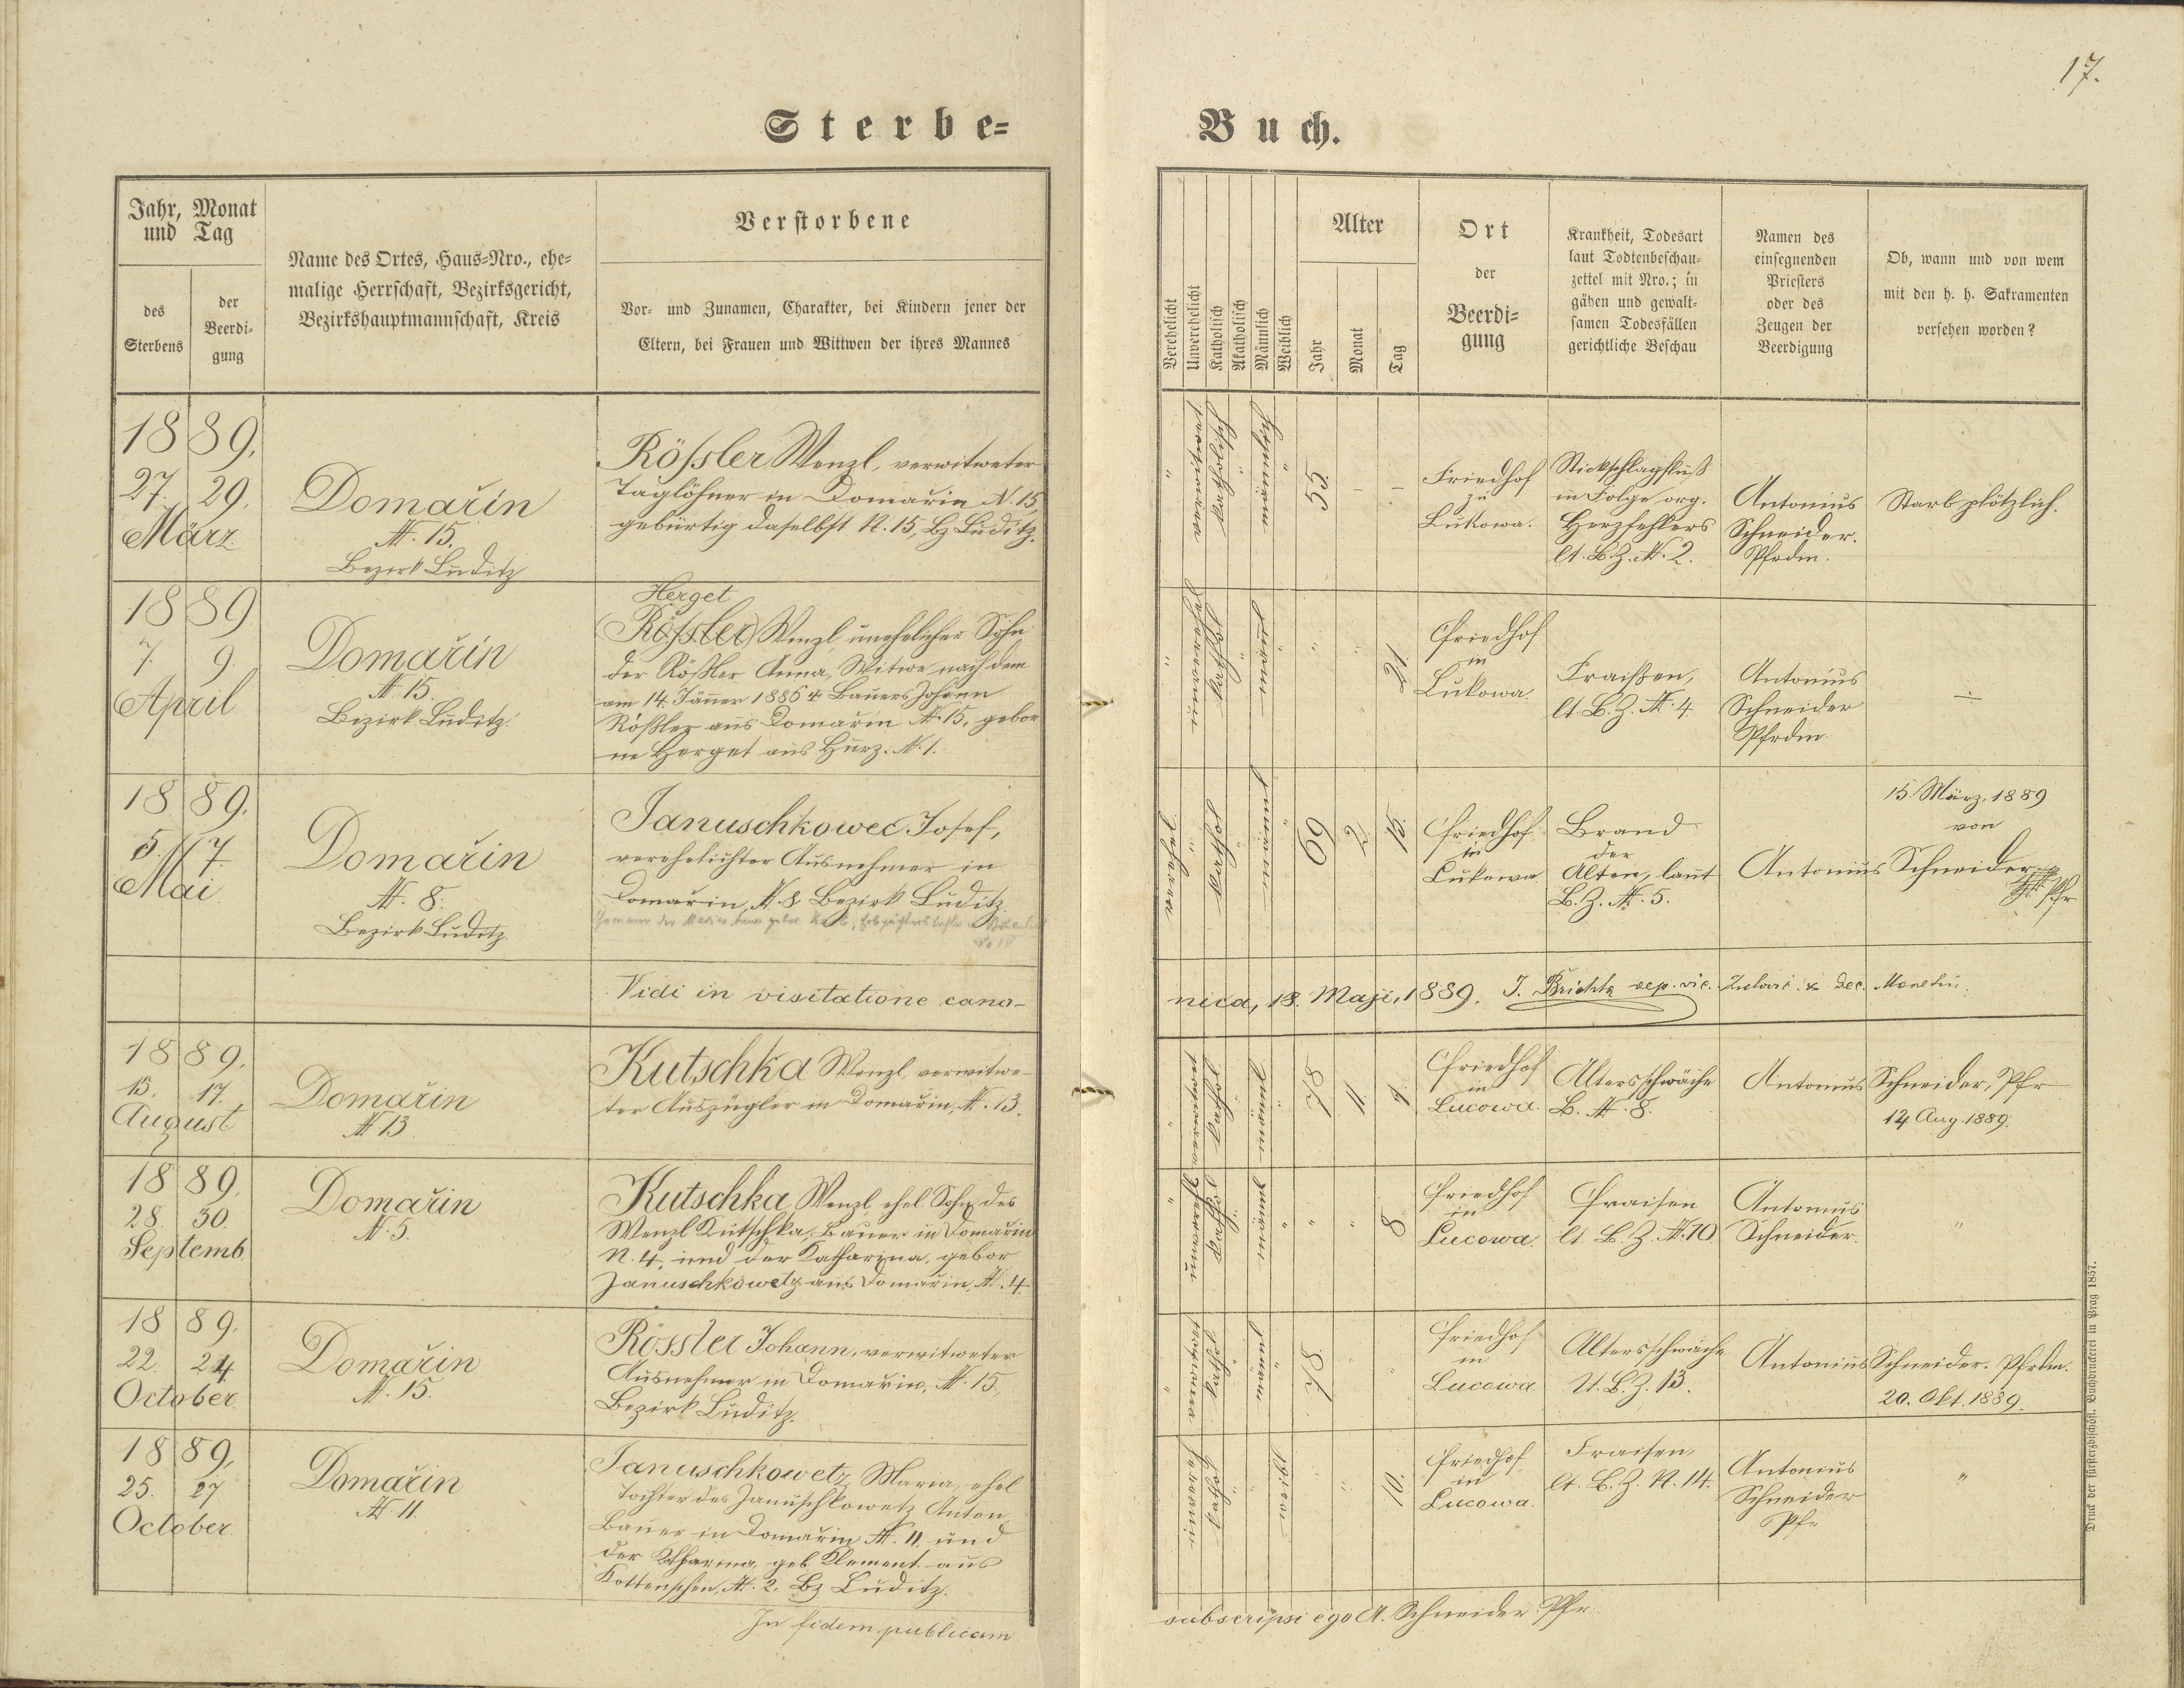 17.
Sterbe-
Buch.
Jahr, Monat
und Tag
des
Sterbens
der
Beerdi-
gung
Name des Ortes, Haus-Nro., ehe-
malige Herrschaft, Bezirksgericht,
Bezirkshauptmannschaft, Kreis
Verstorbene
Vor- und Zunamen, Charakter, bei Kindern jener der
Eltern, bei Frauen und Wittwen der ihres Mannes
Verehelicht
Unverehelicht
Katholisch
Akatholisch
Männlich
Weiblich
Alter
Jahr
Monat
Tag
Ort
der
Beerdi-
gung
Krankheit, Todesart
laut Todtenbeschau-
zettel mit Nro.; in
gähen und gewalt-
samen Todesfällen
gerichtliche Beschau
Namen des
einsegnenden
Priesters
oder des
Zeugen der
Beerdigung
Ob, wann und von wem
mit den h. h. Sakramenten
versehen worden?
1889.
27. 29.
März
Domařin
N. 15.
Bezirk Luditz
Rössler Wenzl, verwitweter
Taglöhner in Domařin N. 15,
gebürtig daselbst N. 15, Bz Luditz.
" verwitwet katholisch " männlich "
55. - -
Friedhof
zu
Lukowa.
Stickschlagfluß
in Folge org.
Herzfehlers
lt. B. Z. N. 2.
Antonius
Schneider.
Pfrdm.
Starb plötzlich.
1889
7. 9.
April
Domařin
N. 15.
Bezirk Luditz.
Herget
(Rössler) Wenzl, unehelicher Sohn
der Rößler Anna, Witwe nach dem
am 14. Jänner 1885 † Bauers Johann
Rößler aus Domařin N. 15, gebor
ne Herget aus Hurz. N. 1.
" " " 21.
Friedhof
in
Lukowa
Fraißen,
lt. B. Z. N. 4.
Antonius
Schneider
Pfrdm.
÷
1889.
5. 7.
Mai
Domařin
N. 8.
Bezirk Luditz.
Januschkowec Josef,
verehelichter Ausnehmer in
Domařin, N. 8 Bezirk Luditz.
69 2. 15.
Friedhof
in
Lukowa.
Brand
der
Alten, laut
B. Z. N. 5.
Antonius Schneider
Pfr
15. März. 1889
von
Vidi in visitatione cano-
nica, 18. Maji, 1889. J. Brichta
1889.
15. 17.
August
Domařin
N 13
Kutschka Wenzl, verwitwe-
ter Auszügler in Domařin, N. 13.
78 11.
Friedhof
in
Lucowa
Altersschwäche
B. N. 8.
Antonius Schneider, Pfr
14. Aug. 1889.
1889.
28. 30.
Septemb.
Domařin
N. 5.
Kutschka Wenzl, ehel Sohn des
Wenzl Kutschka, Bauer in Domařin
N. 4, und der Katharina, gebor
Januschkowetz aus Domařin, N. 4.
" " 8
Friedhof
in
Lucowa.
Fraisen
lt. B. Z. N. 10
Antonius
Schneider.
"
1889.
22. 24.
October
Domařin
N. 15.
Rössler Johann, verwitweter
Ausnehmer in Domařin, N. 15,
Bezirk Luditz.
78. " "
Friedhof
in
Lucowa
Altersschwäche
lt. B. Z. 13.
Antonius Schneider. Pfrdm.
20. Okt. 1889.
1889,
25. 27
October
Domařin
N. 11
Januschkowetz Maria, ehel
Tochter des Januschkowetz Anton,
Bauer in Domařin N. 11, und
der Katharina, geb. Klement aus
Kottenschin, N. 2, Bz Luditz.
" " 10.
Friedhof
in
Lucowa.
Fraisen,
lt. B. Z. N. 14.
Antonius
Schneider
Pfr
"
In fidem publicam
subscripsi ego A. Schneider Pfr
Druck der fürsterzbischöfl. Buchdruckerei in Prag 1857.